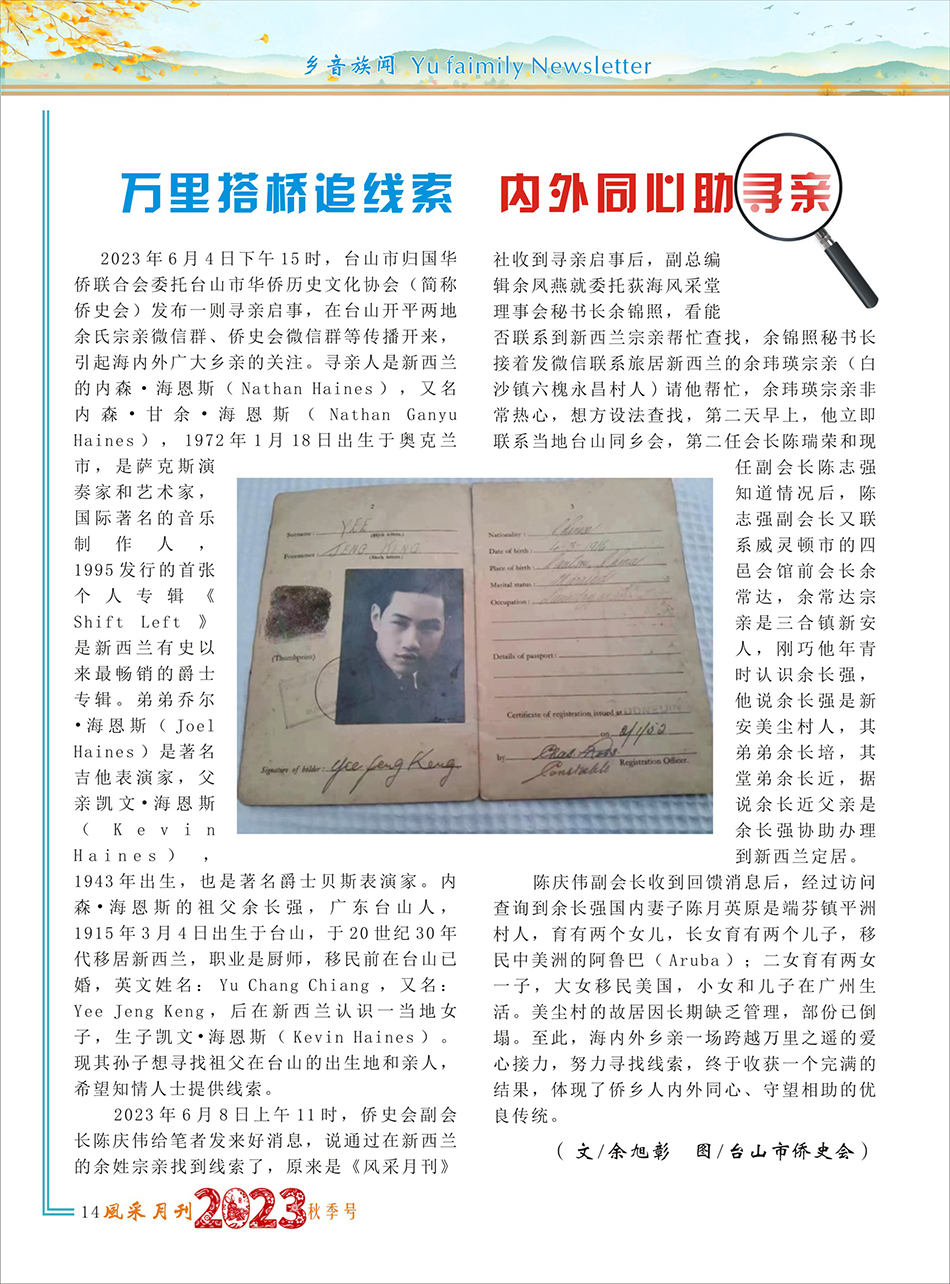 乡音族闻 Yu faimily Newsletter
万里搭桥追线索 内外同心助寻亲
2023年6月4日下午15时，台山市归国华
侨联合会委托台山市华侨历史文化协会（简称
侨史会）发布一则寻亲启事，在台山开平两地
余氏宗亲微信群、侨史会微信群等传播开来，
引起海内外广大乡亲的关注。寻亲人是新西兰
的内森•海恩斯（Nathan Haines），又名
内森•甘余•海恩斯（Nathan Ganyu
Haines），1972年1月18日出生于奥克兰
市，是萨克斯演
奏家和艺术家，
国际著名的音乐
制作人，
1995发行的首张
个人专辑《
Shift Left 》
是新西兰有史以
来最畅销的爵士
专辑。弟弟乔尔
•海恩斯（Joel
Haines）是著名
吉他表演家，父
亲凯文•海恩斯
（Kevin
Haines），
1943年出生，也是著名爵士贝斯表演家。内
森•海恩斯的祖父余长强，广东台山人，
1915年3月4日出生于台山，于20世纪30年
代移居新西兰，职业是厨师，移民前在台山已
婚，英文姓名：Yu Chang Chiang ，又名：
Yee Jeng Keng，后在新西兰认识一当地女
子，生子凯文•海恩斯（Kevin Haines）。
现其孙子想寻找祖父在台山的出生地和亲人，
希望知情人士提供线索。
2023年6月8日上午11时，侨史会副会
长陈庆伟给笔者发来好消息，说通过在新西兰
的余姓宗亲找到线索了，原来是《风采月刊》
社收到寻亲启事后，副总编
辑余凤燕就委托荻海风采堂
理事会秘书长余锦照，看能
否联系到新西兰宗亲帮忙查找，余锦照秘书长
接着发微信联系旅居新西兰的余玮瑛宗亲（白
沙镇六槐永昌村人）请他帮忙，余玮瑛宗亲非
常热心，想方设法查找，第二天早上，他立即
联系当地台山同乡会，第二任会长陈瑞荣和现
任副会长陈志强
知道情况后，陈
志强副会长又联
系威灵顿市的四
邑会馆前会长余
常达，余常达宗
亲是三合镇新安
人，刚巧他年青
时认识余长强，
他说余长强是新
安美尘村人，其
弟弟余长培，其
堂弟余长近，据
说余长近父亲是
余长强协助办理
到新西兰定居。
陈庆伟副会长收到回馈消息后，经过访问
查询到余长强国内妻子陈月英原是端芬镇平洲
村人，育有两个女儿，长女育有两个儿子，移
民中美洲的阿鲁巴（Aruba）；二女育有两女
一子，大女移民美国，小女和儿子在广州生
活。美尘村的故居因长期缺乏管理，部份已倒
塌。至此，海内外乡亲一场跨越万里之遥的爱
心接力，努力寻找线索，终于收获一个完满的
结果，体现了侨乡人内外同心、守望相助的优
良传统。
（文/余旭彰 图/台山市侨史会）
2
Surname: YEE
(Block letters.)
Forenames: JENG KENG
(Block letters.)
(Thumbprint)
Signature of holder: Yee Jeng Keng
3
Nationality: China
Date of birth:
Place of birth: Canton China
Marital status: Married
Occupation:
Details of passport:
Certificate of registration issued at DUNEDIN
on
by
Constable
Registration Officer.
14 風采月刊 2023 秋季号